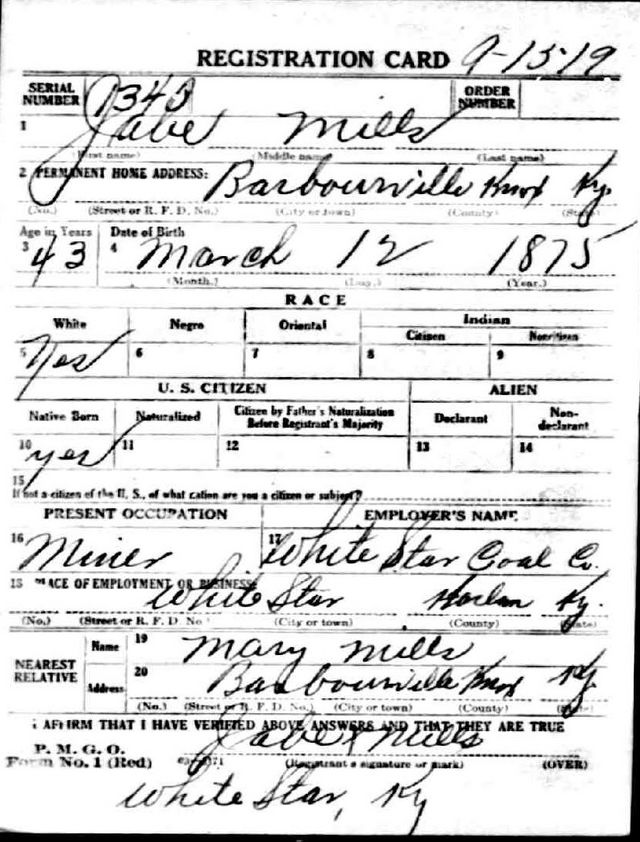 REGISTRATION CARD 9-15-19
SERIAL NUMBER 1343 ORDER NUMBER
1 Jabe Mills
(First name) (Middle name) (Last name)
2 PERMANENT HOME ADDRESS: Barbourville Knox Ky.
(No.) (Street or R. F. D. No.) (City or town) (County) (State)
Age in Years Date of Birth
3 43 4 March 12 1875
(Month.) (Day.) (Year.)
RACE
White Negro Oriental Indian
Citizen Noncitizen
5 Yes 6 7 8 9
U. S. CITIZEN ALIEN
Native Born Naturalized Citizen by Father's Naturalization Before Registrant's Majority Declarant Non-declarant
10 yes 11 12 13 14
15
If not a citizen of the U. S., of what nation are you a citizen or subject?
PRESENT OCCUPATION EMPLOYER'S NAME
16 Miner 17 White Star Coal Co.
18 PLACE OF EMPLOYMENT OR BUSINESS:
White Star Harlan Ky.
(No.) (Street or R. F. D. No.) (City or town) (County) (State)
NEAREST RELATIVE Name 19 Mary Mills
Address 20 Barbourville Knox Ky
(No.) (Street or R. F. D. No.) (City or town) (County) (State)
I AFFIRM THAT I HAVE VERIFIED ABOVE ANSWERS AND THAT THEY ARE TRUE
P. M. G. O.
Form No. 1 (Red) Jabe x Mills
(Registrant's signature or mark) (OVER)
White Star, Ky